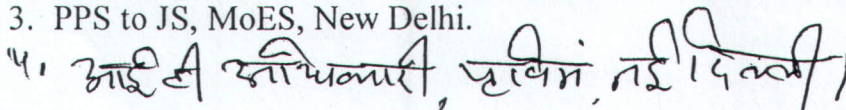 3. PPS to JS, MoES, New Delhi.
4. आई टी अधिकारी, पृविमं, नई दिल्ली।